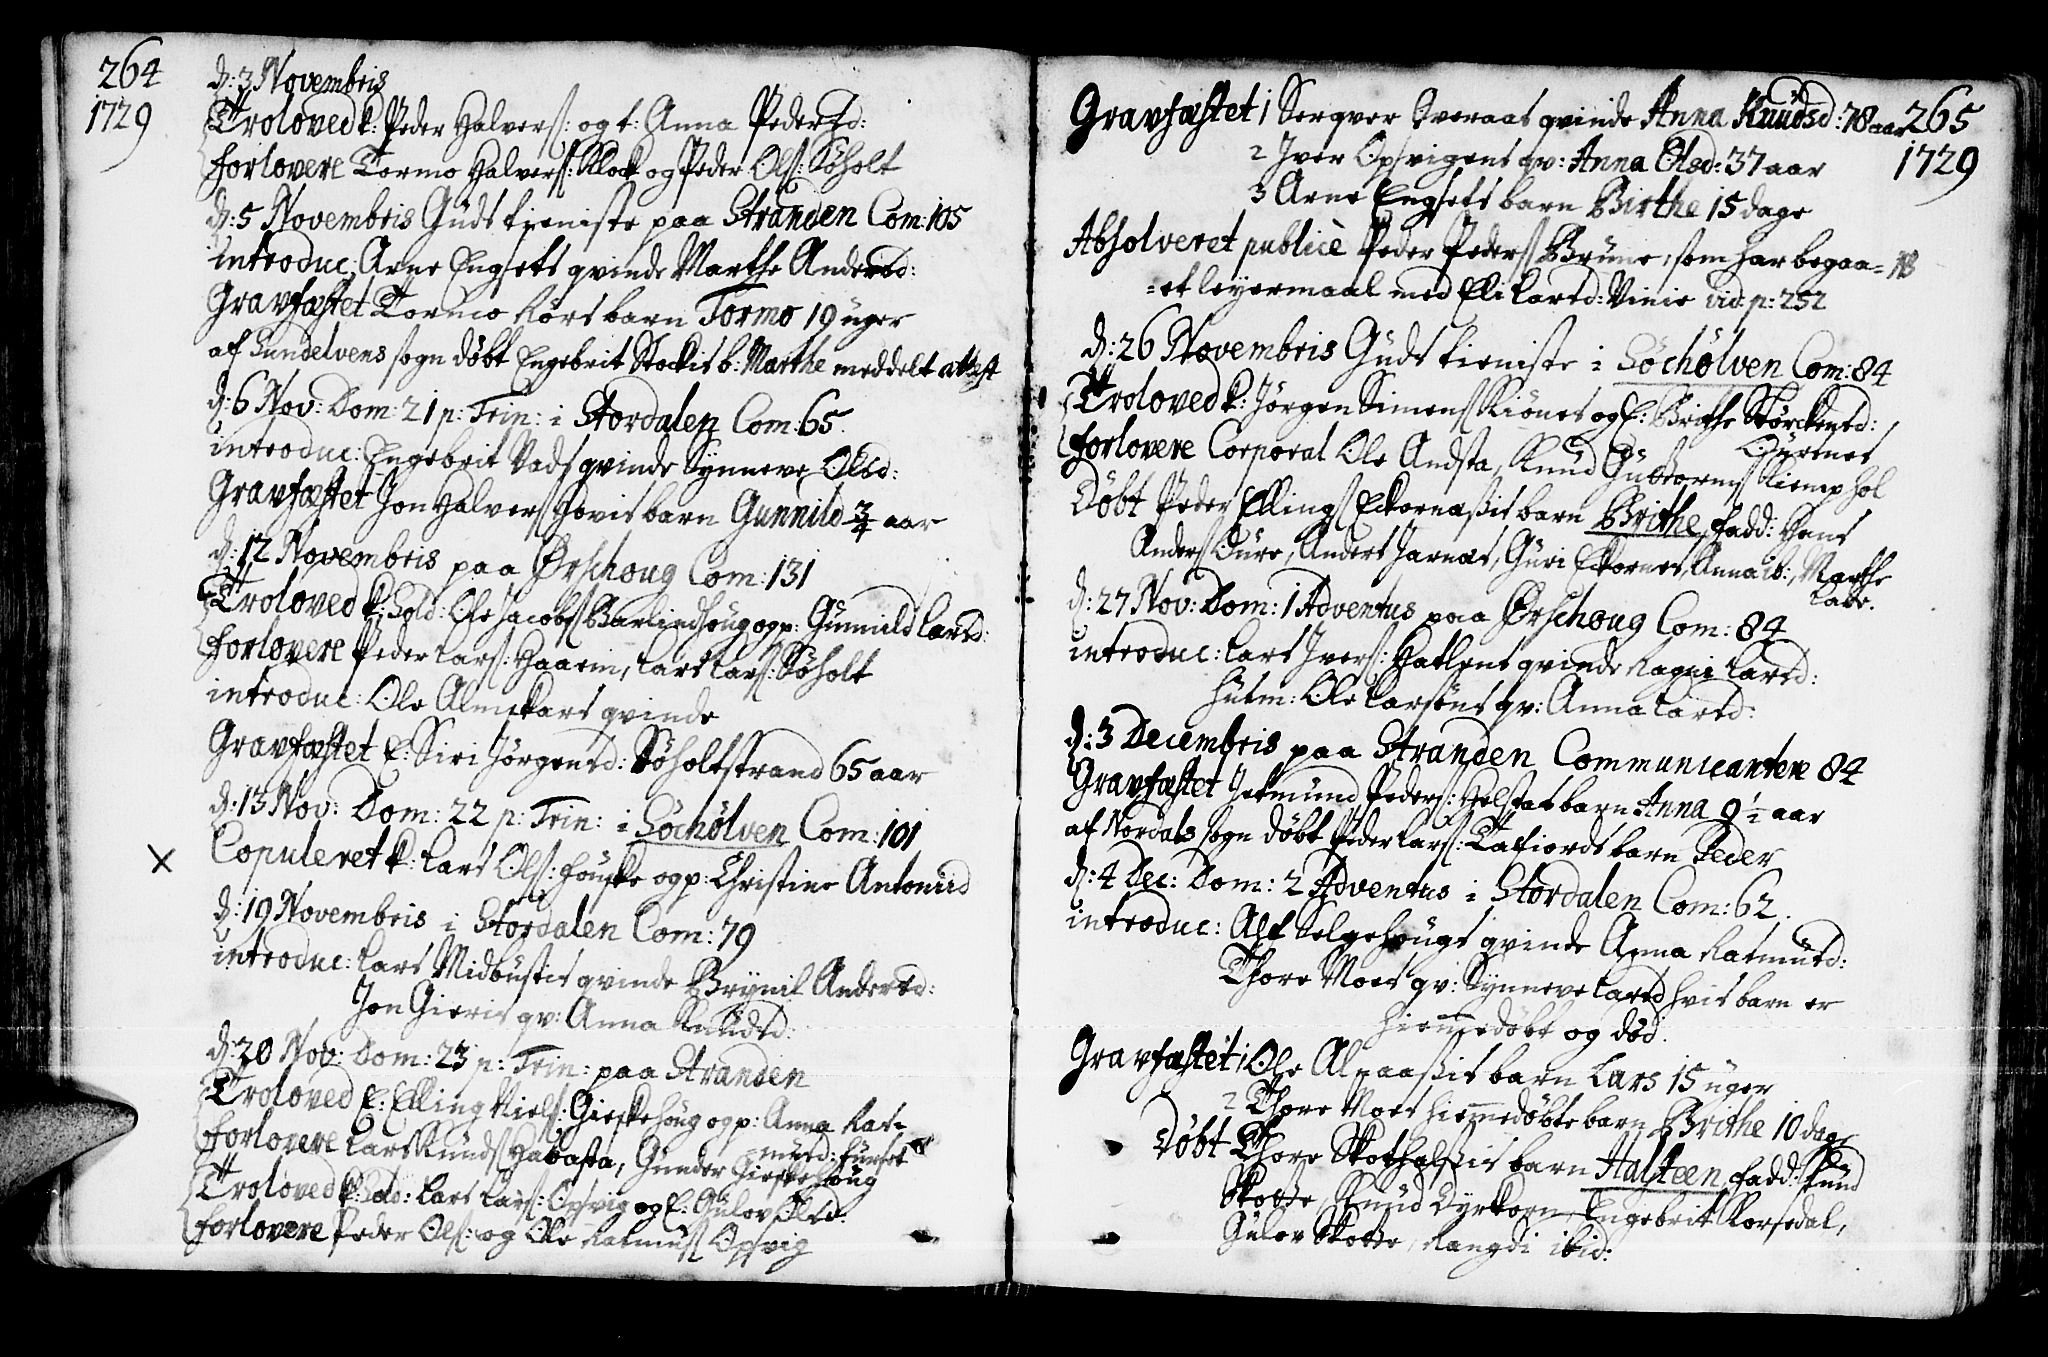 264
1729
d: 3 Novembris
Troloved k: Peder Halvers: og t: Anna Pedersd:
forlovere Tormo Halvers: Klock og Peder Ols: Søholt
d: 5 Novembris Guds tieniste paa Stranden Com: 105
introduc: Arne Engsets qvinde Marthe Andersd:
Gravfæstet Tormo barn Tormo 19 uger
af Sundelvens sogn døbt Engebrit Stockis b: Marthe meddelt attest
d: 6 Nov: Dom: 21 p: Trin: i Stordalen Com: 65.
introduc: Engebrit Vads qvinde Synneve Olsd:
Gravfæstet Jon Halvers Hovis barn Gunnild 3/4 aar
d: 12 Novembris paa Ørschoug Com: 131
Troloved k: Sold: Ole Jacobs Barlindhoug og p: Gunnild Larsd:
forlovere Peder Lars: Haaeim, Lars Lars: Søholt
introduc: Ole Almskars qvinde
Gravfæstet E: Siri Jørgensd: Søholtstrand 65 aar
d: 13 Nov: Dom: 22 p: Trin: i Søchølven Com: 101
× Copuleret k: Lars Ols: Fouske og p: Christine Antonisd
d: 19 Novembris i Stordalen Com: 79
introduc: Lars Midbustis qvinde Brynil Andersd:
Jon Gieris qv: Anna Knudsd:
d: 20 Nov: Dom: 23 p: Trin: paa Stranden
Troloved E: Elling Niels: Gieskehoug og p: Anna Ras-
musd: Furset
forlovere Lars Knuds Habasta, Gunder Gieskehoug
Troloved k: Sold: Lars Lars: Opsvig og E: Gulov Olsd:
forlovere Peder Ols: og Ole Rasmus Opsvig
265
1729
Gravfæstet 1 Serqver Overaas qvinde Anna Knudsd: 78 aar
2 Iver Opsvigens qv: Anna Olsd: 37 aar
3 Arne Engsets barn Birthe 15 dage
Absolveret publicè Peder Peders Brune, som har begaa= NB
=et leyermaal med Eli Larsd: Vinie vid: p: 252
d: 26 Novembris Guds tieniste i Søchølven Com: 84
Troloved k: Jørgen Simens Kiønes og E: Brithe Størckersd:
Dyrnes
forlovere Corporal Ole Andsta, Knud Guttorms Kiemphol
Døbt Peder Ellings Eckornaßis barn Brithe, fadd: Hans
Anders Dure, Anders Jarnæs, Guri Eckornes, Anna ib:, Marthe
Labe.
d: 27 Nov: Dom: 1 Adventus paa Ørschoug Com: 84
introduc: Lars Ivers: Hatlens qvinde Ragni Larsd:
husm: Ole Larsøns qv: Anna Larsd:
d: 3 Decembris paa Stranden Communicantere 84
Gravfæstet Jetmund Peders: Helstat barn Anna 9 1/2 aar
af Nordals sogn døbt Peder Lars: Tafiords barn Peder
d: 4 Dec: Dom: 2 Adventus i Stordalen Com: 62.
introduc: Alf Selgehougs qvinde Anna Rasmusd:
Thore Moes qv: Synneve Larsd hvis barn er
hiemmedøbt og død.
Gravfæstet 1 Ole Alvaaßis barn Lars 15 uger
2 Thore Moes hiemmedøbte barn Brithe 10 dage
Døbt Thore Skothalsis barn Halsteen, fadd: Knud
Skotte, Knud Dyrkorn, Engebrit Korsedal,
Gulov Skotte, Rangdi ibid: